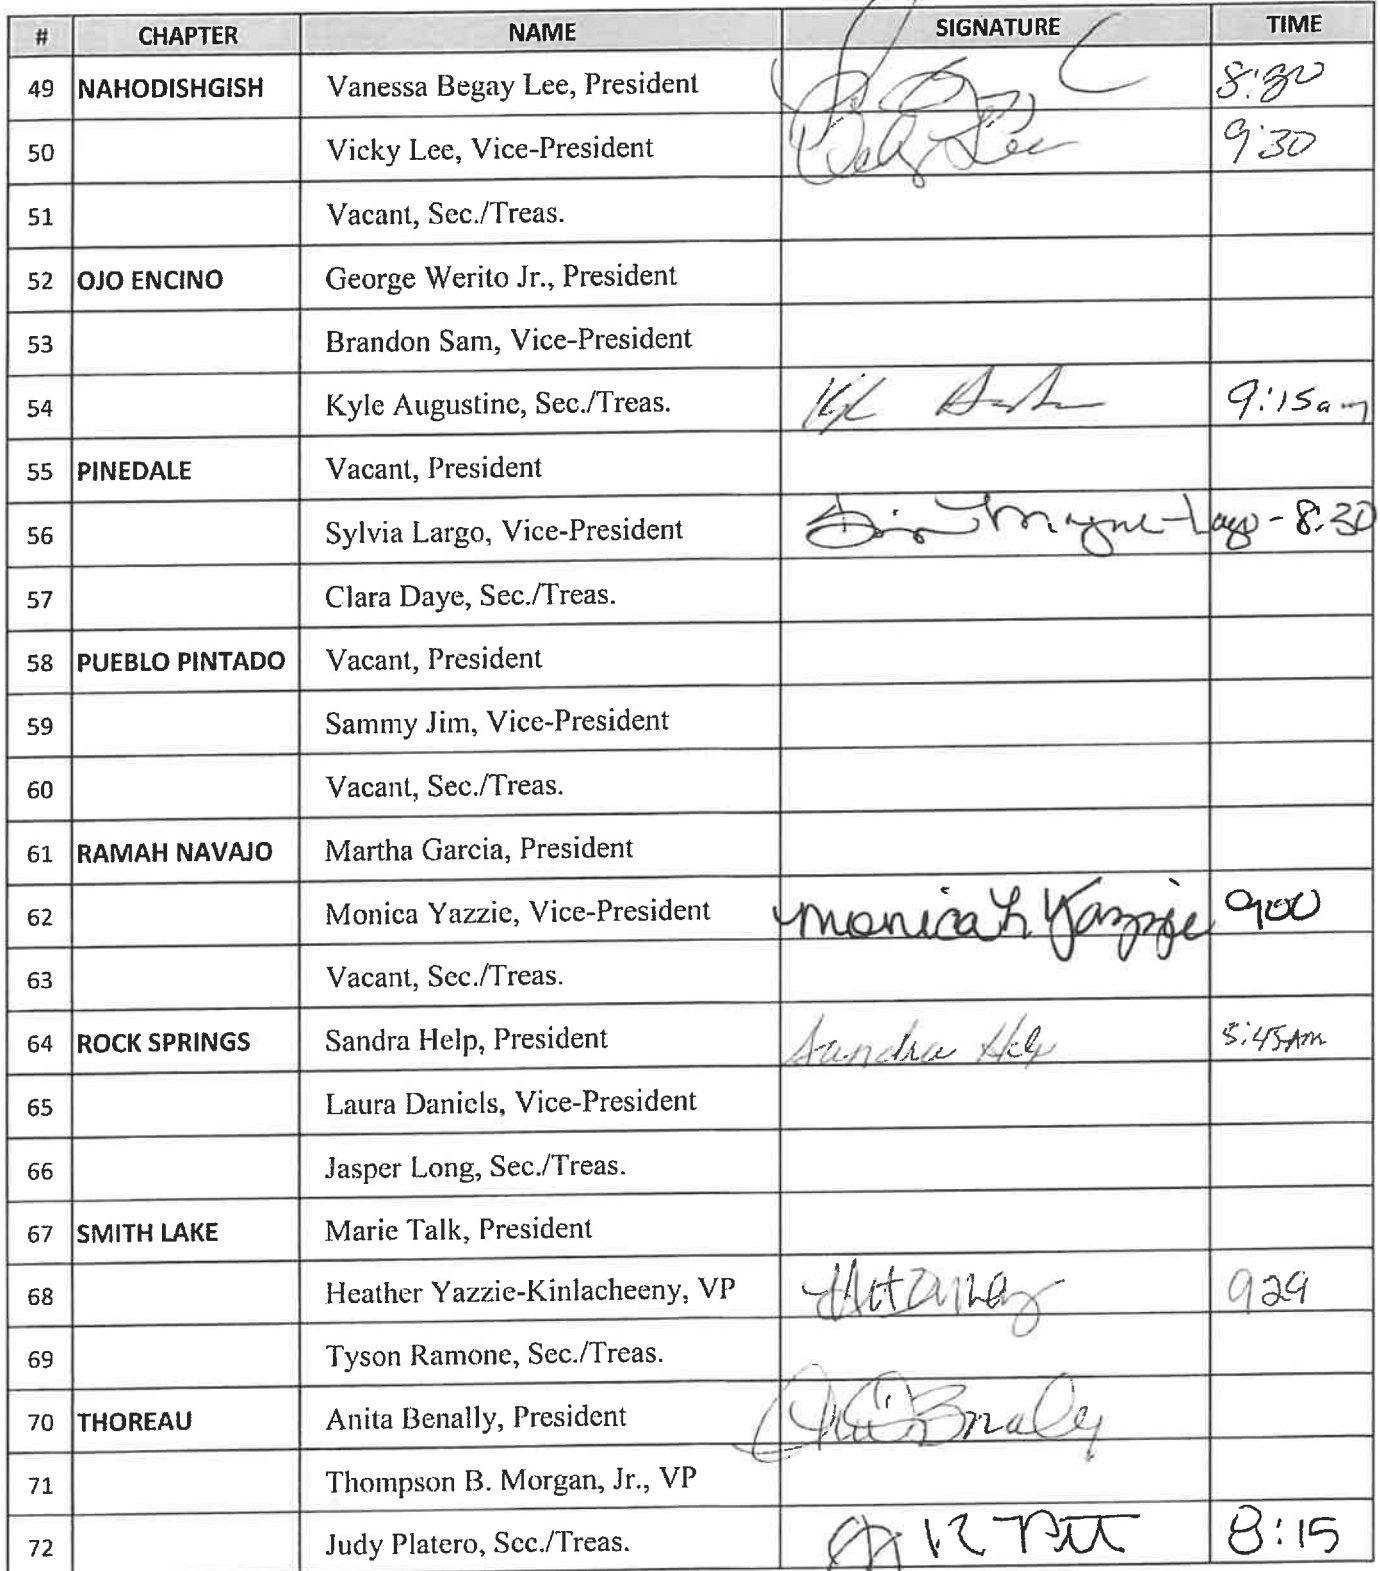 # CHAPTER NAME SIGNATURE TIME
49 NAHODISHGISH Vanessa Begay Lee, President 8:30
50 Vicky Lee, Vice-President Lee 9:30
51 Vacant, Sec./Treas.
52 OJO ENCINO George Werito Jr., President
53 Brandon Sam, Vice-President
54 Kyle Augustine, Sec./Treas. 9:15am
55 PINEDALE Vacant, President
56 Sylvia Largo, Vice-President - 8:30
57 Clara Daye, Sec./Treas.
58 PUEBLO PINTADO Vacant, President
59 Sammy Jim, Vice-President
60 Vacant, Sec./Treas.
61 RAMAH NAVAJO Martha Garcia, President
62 Monica Yazzie, Vice-President Monica L Yazzie 900
63 Vacant, Sec./Treas.
64 ROCK SPRINGS Sandra Help, President Sandra Help 8:45AM
65 Laura Daniels, Vice-President
66 Jasper Long, Sec./Treas.
67 SMITH LAKE Marie Talk, President
68 Heather Yazzie-Kinlacheeny, VP 929
69 Tyson Ramone, Sec./Treas.
70 THOREAU Anita Benally, President
71 Thompson B. Morgan, Jr., VP
72 Judy Platero, Sec./Treas. 8:15